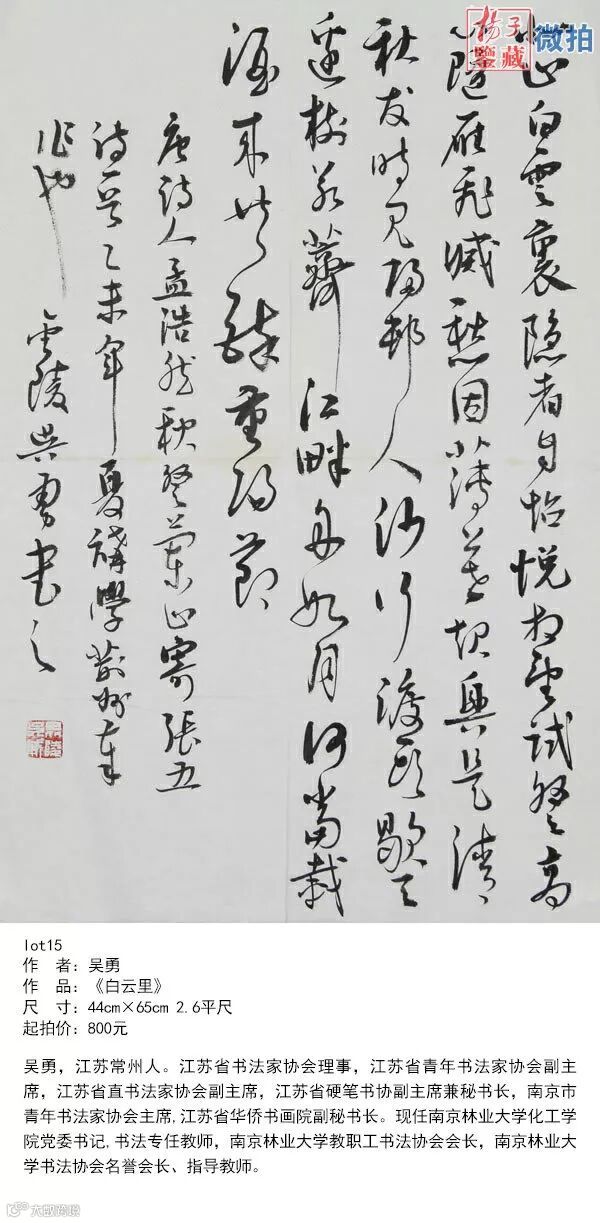 揚子
鑒藏
微拍
北山白雲裏隐者自怡悦相望試登高
心随雁飛滅愁因薄暮起興是清
秋发時见歸邨人沙行渡頭歇天
邊樹若薺江畔舟如月何當載
酒來共醉重陽節
唐詩人孟浩然秋登蘭山寄張五
詩乙未年夏講學
作也
陵吳勇書之
lot15
作 者：吴勇
作 品：《白云里》
尺 寸：44cm×65cm 2.6平尺
起拍价：800元
吴勇，江苏常州人。江苏省书法家协会理事，江苏省青年书法家协会副主
席，江苏省直书法家协会副主席，江苏省硬笔书协副主席兼秘书长，南京市
青年书法家协会主席,江苏省华侨书画院副秘书长。现任南京林业大学化工学
院党委书记,书法专任教师，南京林业大学教职工书法协会会长，南京林业大
学书法协会名誉会长、指导教师。